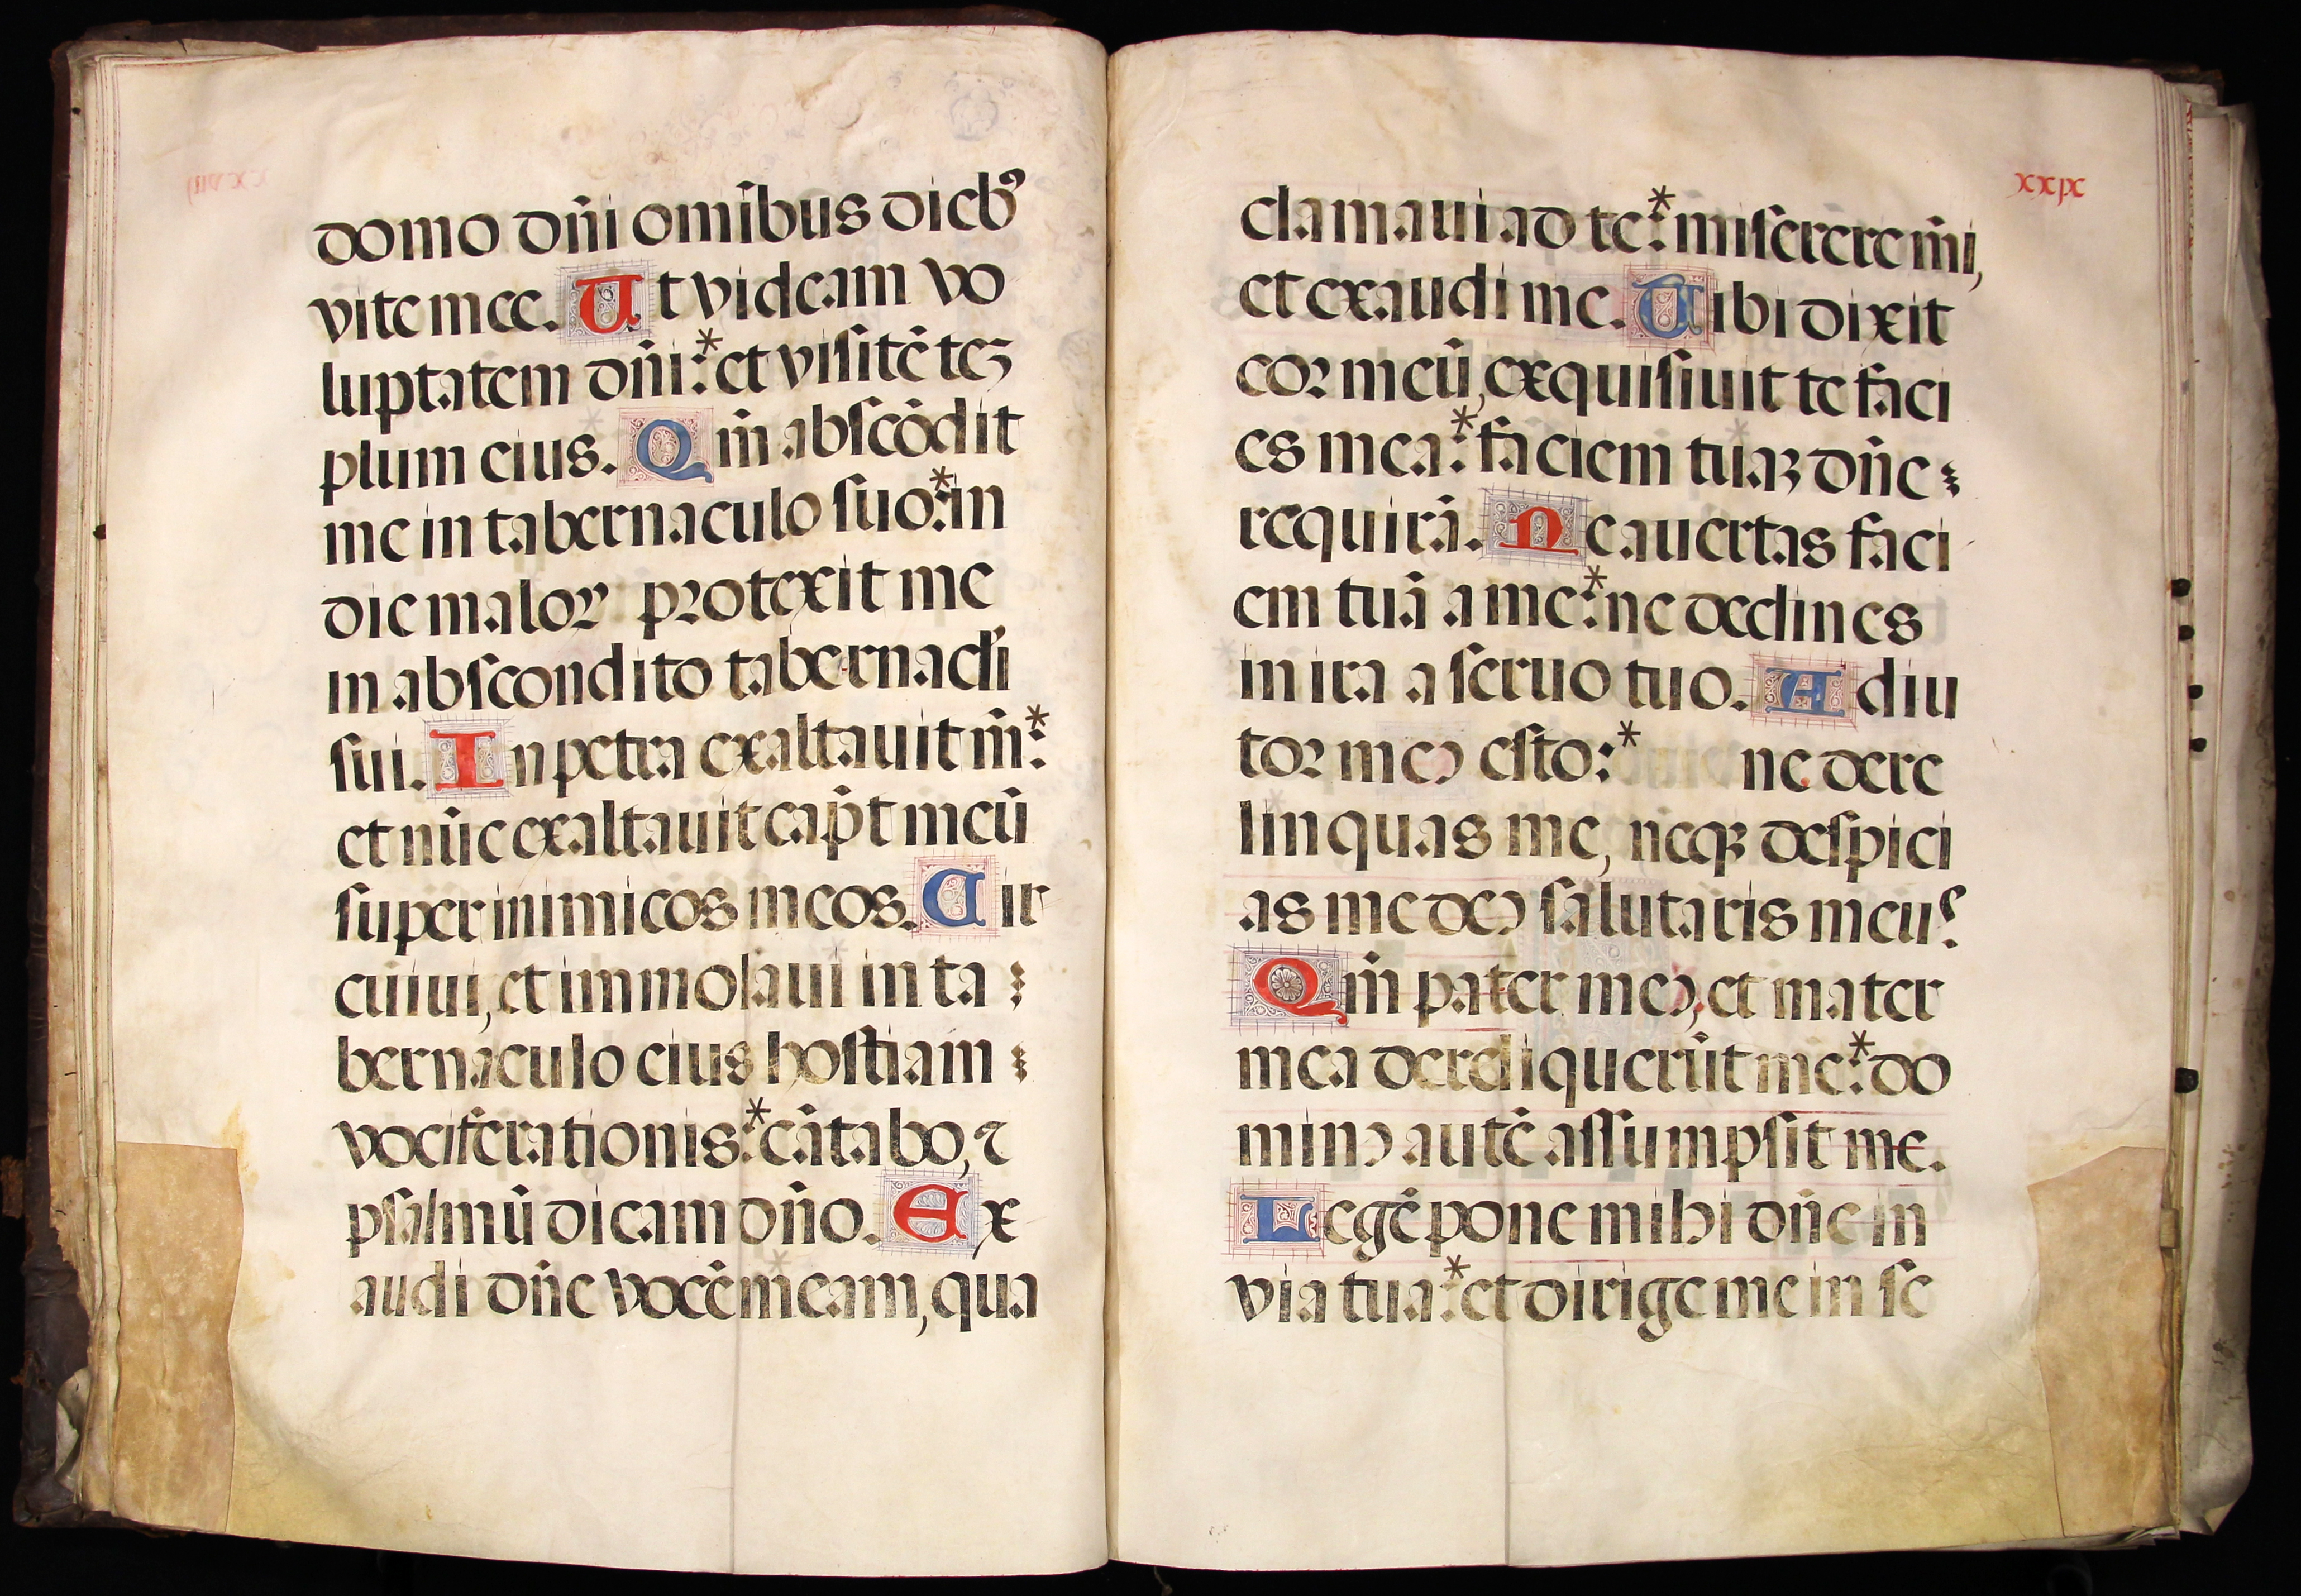 domo dn̄i omībus dieb⁹
vite mee. Ut videam vo
luptatem dn̄i:* et visitē teꝫ
plum eius. Qm̄ abscōdit
me in tabernaculo suo:* in
die maloꝝ protexit me
in abscondito tabernacłi
sui. In petra exaltauit m̄:*
et nūc exaltauit cap̄t meū
super inimicos meos. Cir
cuiui, et immolaui in ta
bernaculo eius hostiam
vociferationis:* cātabo, ⁊
psalmū dicam dn̄o. Ex
audi dn̄e vocē meam, qua
xxix
clamaui ad te:* miserere m̄i,
et exaudi me. Tibi dixit
cor meū, exquisiuit te faci
es mea:* faciem tuaꝫ dn̄e
requirā. Ne auertas faci
em tuā a me:* ne declines
in ira a seruo tuo. Adiu
tor meꝰ esto:* ne dere
linquas me, neqꝫ despici
as me deꝰ salutaris meus.
Qm̄ pater meꝰ, et mater
mea dereliquerūt me:* do
minꝰ autē assumpsit me.
Legē pone mihi dn̄e in
via tua:* et dirige me in se